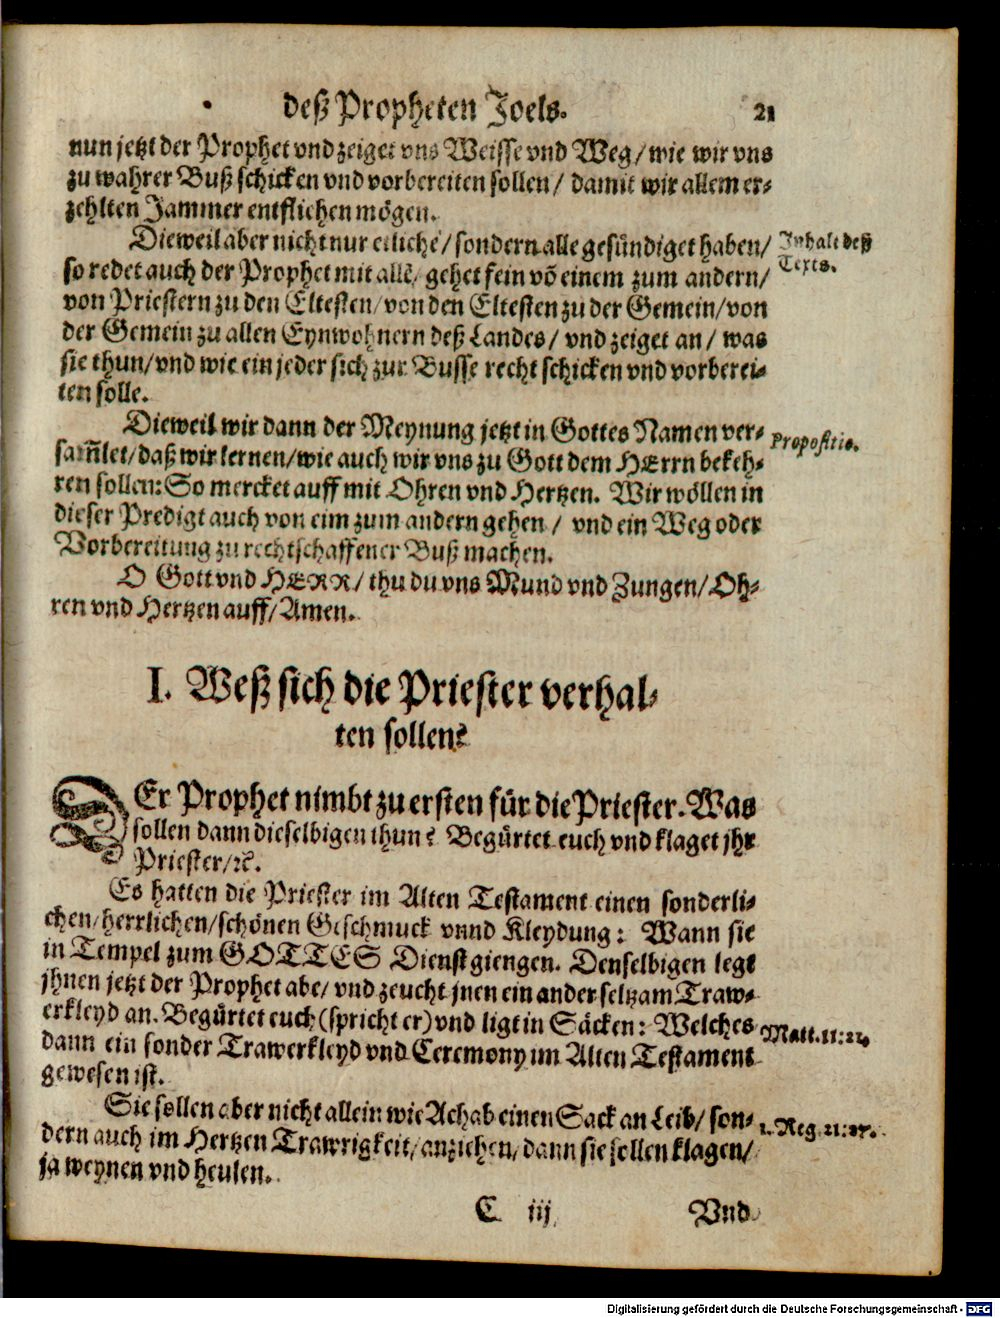 deß Propheten Joels. 21
nun jetzt der Prophet vnd zeiget vns Weisse vnd Weg/ wie wir vns
zu wahrer Buß schicken vnd vorbereiten sollen/ damit wir allem er-
zehlten Jammer entfliehen mögen.
Dieweil aber nicht nur etliche/ sondern alle gesündiget haben/
so redet auch der Prophet mit allē/ gehet fein vō einem zum andern/
von Priestern zu den Eltesten/ von den Eltesten zu der Gemein/ von
der Gemein zu allen Eynwohnern deß Landes/ vnd zeiget an/ was
sie thun/ vnd wie ein jeder sich zur Busse recht schicken vnd vorberei-
ten solle.
Inhalt deß
Texts.
Dieweil wir dann der Meynung jetzt in Gottes Namen ver-
sam̄let/ daß wir lernen/ wie auch wir vns zu Gott dem HErrn bekeh-
ren sollen: So mercket auff mit Ohren vnd Hertzen. Wir wöllen in
dieser Predigt auch von eim zum andern gehen/ vnd ein Weg oder
Vorbereitung zu rechtschaffener Buß machen.
Propositio.
O Gott vnd HERR/ thu du vns Mund vnd Zungen/ Oh-
ren vnd Hertzen auff/ Amen.
I. Weß sich die Priester verhal-
ten sollen?
DEr Prophet nimbt zu ersten für die Priester. Was
sollen dann dieselbigen thun? Begürtet euch vnd klaget jhr
Priester/ ꝛc.
Es hatten die Priester im Alten Testament einen sonderli-
chen/ herrlichen/ schönen Geschmuck vnnd Kleydung: Wann sie
in Tempel zum GOTTES Dienst giengen. Denselbigen legt
jhnen jetzt der Prophet abe/ vnd zeucht jnen ein ander seltzam Traw-
erkleyd an. Begürtet euch (spricht er) vnd ligt in Säcken: Welches
dann ein sonder Trawerkleyd vnd Ceremony im Alten Testament
gewesen ist.
Matt. 11:21.
Sie sollen aber nicht allein wie Achab einen Sack an Leib/ son-
dern auch im Hertzen Trawrigkeit/ anziehen/ dann sie sollen klagen/
ja weynen vnd heulen.
1. Reg. 21:27.
C iij Vnd
Digitalisierung gefördert durch die Deutsche Forschungsgemeinschaft - DFG